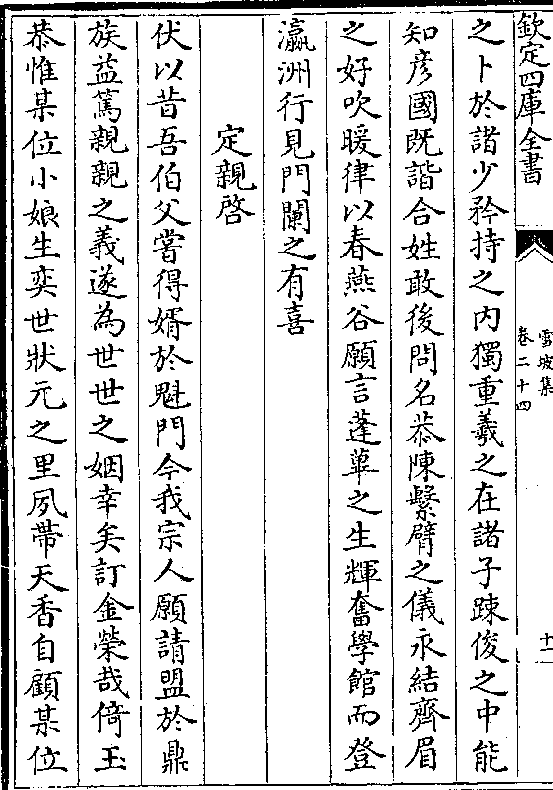 欽定四庫全書
雪坡集
卷二十四
十一
之卜於諸少矜持之内獨重羲之在諸子踈俊之中能
知彦國既諧合姓敢後問名恭陳繫臂之儀永結齊眉
之好吹暖律以春燕谷願言蓬蓽之生輝奮學館而登
瀛洲行見門闌之有喜
定親啓
伏以昔吾伯父嘗得婿於魁門今我宗人願請盟於鼎
族益篤親親之義遂為世世之姻幸矣訂金榮哉倚玉
恭惟某位小娘生奕世狀元之里夙帶天香自顧某位